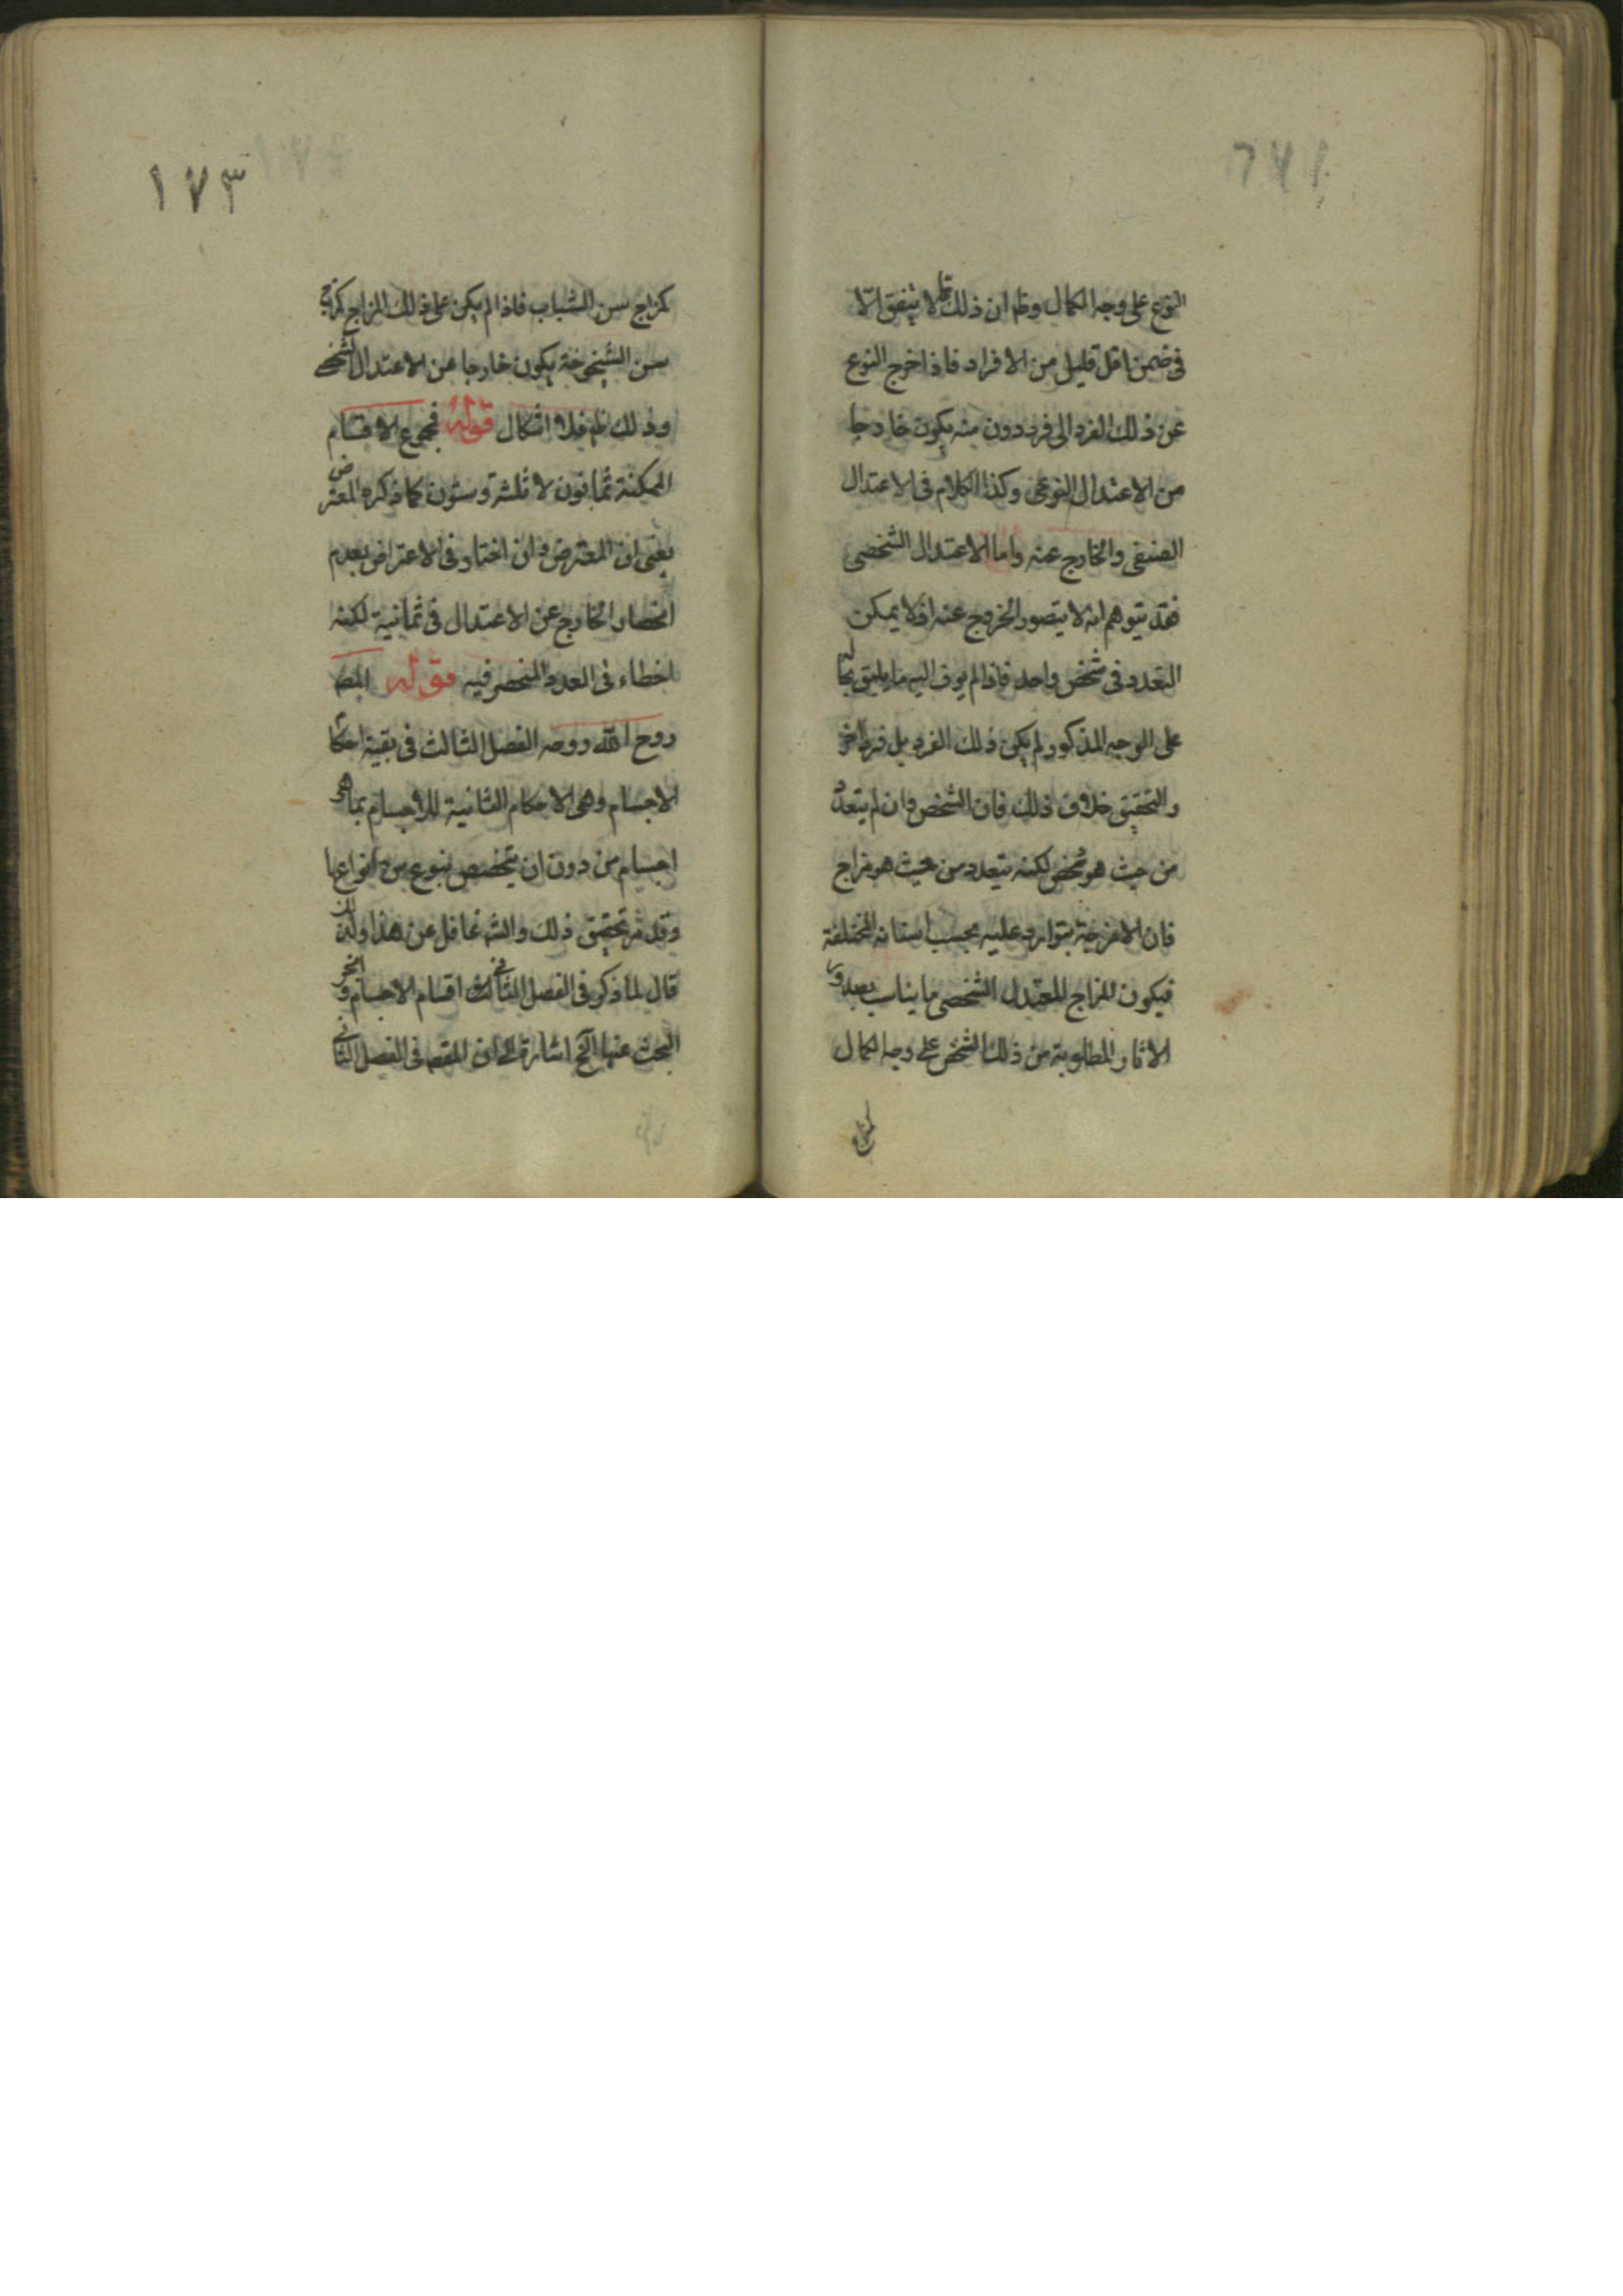 النوع على وجه الكمال وظ ان ذلك قلما لا يتفق الّا
فى ضمن اقل قليل من الافراد فاذا خرج النوع
عن ذلك الفرد الى فرد دون منه يكون خارجا
من الاعتدال النوعى وكذا الكلام فى الاعتدال
الصنفى والخارج عنه واما الاعتدال الشخصى
فقد يتوهم انه لا يتصور الخروج عنه اذ لا يمكن
التعدد فى شخص واحد فاذا لم يوف اليه ما يليق بحاله
على الوجه المذكور لم يكن ذلك الفرد بل فردا اخر
والتحقيق خلاف ذلك فان الشخص وان لم يتعدد
من حيث هو شخص لكنه يتعدد من حيث هو مزاج
فان الامزجة يتوارد عليه بحسب اسنانه المختلفة
فيكون المزاج المعتدل الشخصى ما يناسب صدور
الاثار المطلوبة من ذلك الشخص على وجه الكمال
كمزاج
١٧٣
كمزاج سن الشباب فاذا لم يكن على ذلك المزاج كمزاج
سن الشيخوخة يكون خارجا عن الاعتدال الشخصى
وذلك ظ فلا اشكال قوله فمجموع الاقسام
الممكنة ثمانون لا ثلثة وستون كما ذكره المعترض
يعنى ان المعترض وان اختار فى الاعتراض بعدم
انحصار الخارج عن الاعتدال فى ثمانية لكنه
اخطاء فى العدد المنحصر فيه قوله المص
روح الله روحه الفصل الثالث فى بقية احكام
الاجسام وهى الاحكام الثانية للاجسام بما هو
اجسام من دون ان يتخصص بنوع من انواعها
وقد مر تحقيق ذلك والش غافل عن هذا ولذا
قال لما ذكر فى الفصل الثانى اقسام الاجسام وانجر
البحث عنها الخ اشارة الى ان المقص فى الفصل الثانى